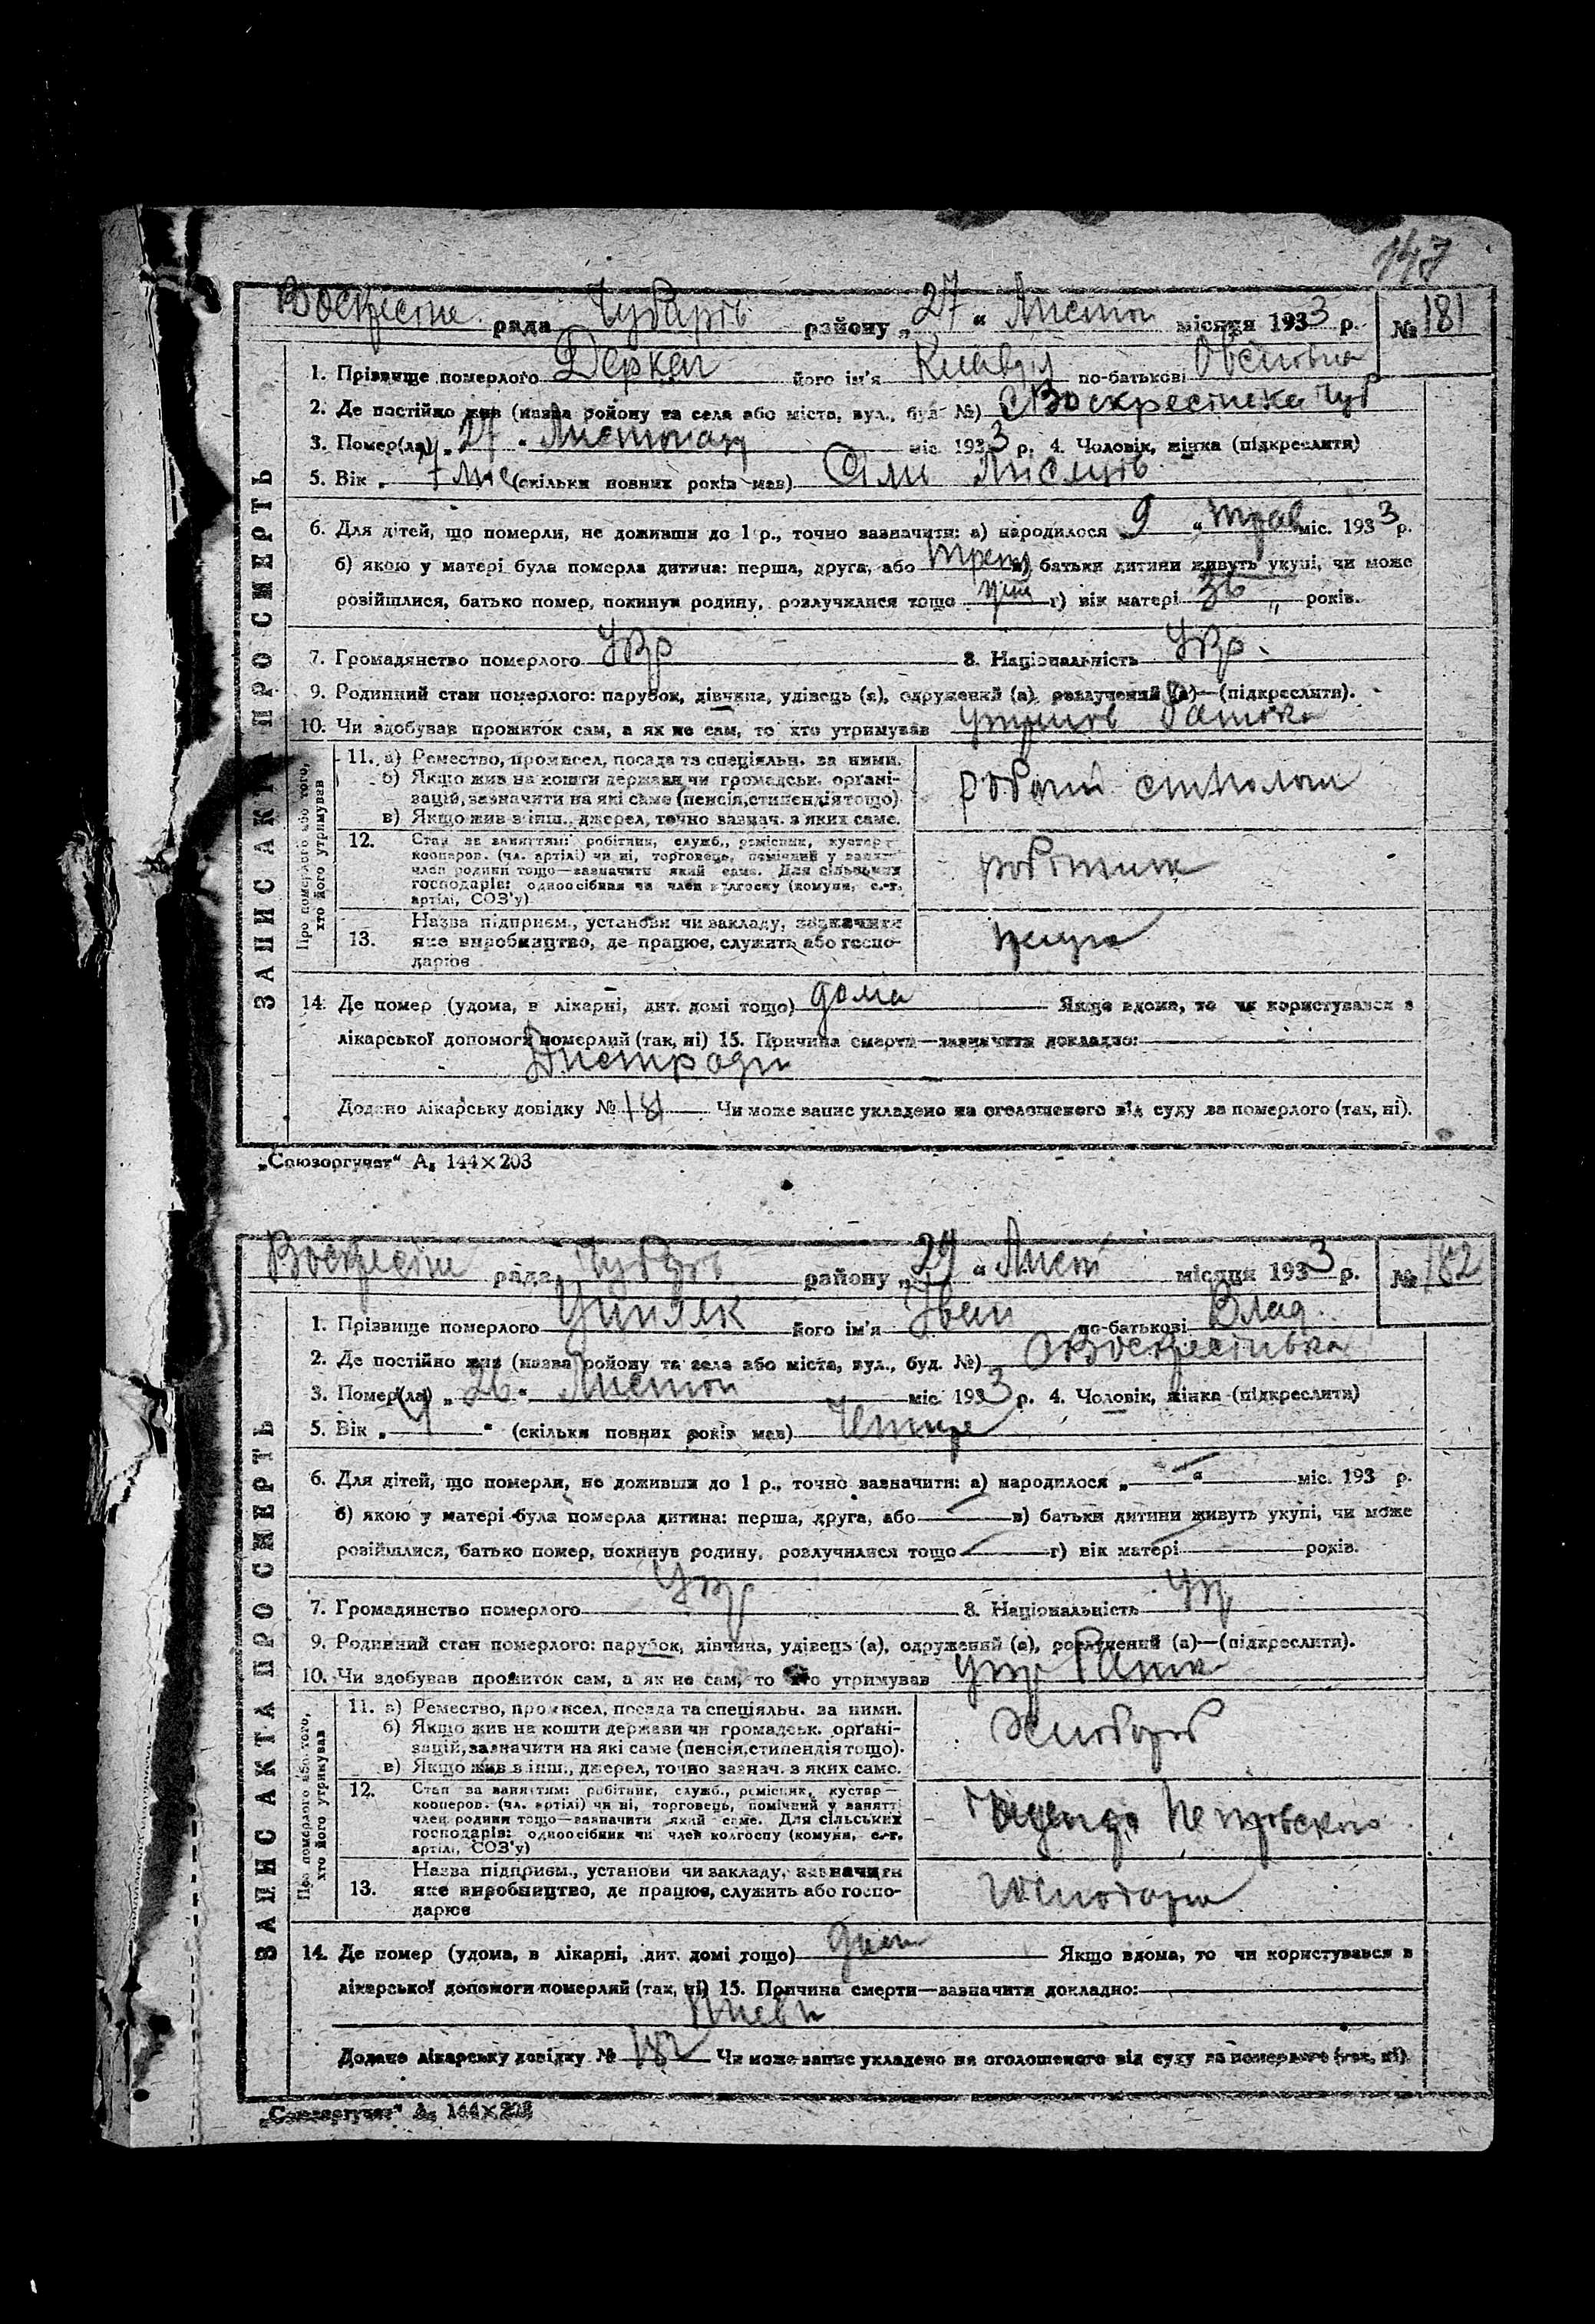 147
Воскресін рада Чубарів району „27“ Листоп місяця 1933 р. № 181
ЗАПИС АКТА ПРО СМЕРТЬ
1. Прізвище померлого Деркач його ім'я Клавдія по-батькові
2. Де постійно жив (назва району та села або міста, вул., буд. №) с Воскресінська Чуб
3. Помер(ла) „27“ Листопаду міс. 1933 р. 4. Чоловік, жінка (підкреслити)
5. Вік „7 міс“ (скільки повних років мав) Сім місяців
6. Для дітей, що померли, не доживши до 1 р., точно зазначити: а) народилося 9 „ трав міс. 1933 р.
б) якою у матері була померла дитина: перша, друга, або трет в) батьки дитини живуть укупі, чи може
розійшлися, батько помер, покинув родину, розлучилися тощо г) вік матері 36 „ років.
7. Громадянство померлого Укр 8. Національність Укр.
9. Родинний стан померлого: парубок, дівчина, удівець (а), одружений (а), розлучений (а)—(підкреслити).
10. Чи здобував прожиток сам, а як не сам, то хто утримував батько
Про померлого або того, хто його утримував
11. а) Ремество, промисел, посада та спеціяльн. за ними.
б) Якщо жив на кошти держави чи громадськ. органі-
зацій, зазначити на які саме (пенсія, стипендія тощо).
в) Якщо жив з інш., джерел, точно зазнач. з яких саме.
12. Стан за заняттям: робітник, служб., ремісник, кустар—
кооперов. (чл. артілі) чи ні, торговець, помічний у занятті
член родини тощо—зазначити який саме. Для сільських
господарів: одноосібник чи член колгоспу (комуни, с.-г.
артілі, СОЗ'у)
робітник
13. Назва підприєм., установи чи закладу, зазначити
яке виробництво, де працює, служить або госпо-
дарює
14. Де помер (удома, в лікарні, дит. домі тощо) дома Якщо вдома, то чи користувався з
лікарської допомоги померлий (так, ні) 15. Причина смерти—зазначити докладно:
Додано лікарську довідку № 181 Чи може запис укладено на оголошеного від суду за померлого (так, ні).
„Союзоргучет“ А₅ 144×203
Воскресін рада району „29“ Лист місяця 1933 р. № 182
ЗАПИС АКТА ПРО СМЕРТЬ
1. Прізвище померлого його ім'я Іван по-батькові Влад.
2. Де постійно жив (назва району та села або міста, вул., буд. №) с Воскресінська
3. Помер(ла) „26“ Листоп міс. 1933 р. 4. Чоловік, жінка (підкреслити)
5. Вік „4“ (скільки повних років мав) Чотире
6. Для дітей, що померли, не доживши до 1 р., точно зазначити: а) народилося „ “ міс. 193 р.
б) якою у матері була померла дитина: перша, друга, або в) батьки дитини живуть укупі, чи може
розійшлися, батько помер, покинув родину, розлучилися тощо г) вік матері років.
7. Громадянство померлого Укр 8. Національність Укр
9. Родинний стан померлого: парубок, дівчина, удівець (а), одружений (а), розлучений (а)—(підкреслити).
10. Чи здобував прожиток сам, а як не сам, то хто утримував
Про померлого або того, хто його утримував
11. а) Ремество, промисел, посада та спеціяльн. за ними.
б) Якщо жив на кошти держави чи громадськ. органі-
зацій, зазначити на які саме (пенсія, стипендія тощо).
в) Якщо жив з інш., джерел, точно зазнач. з яких саме.
12. Стан за заняттям: робітник, служб., ремісник, кустар—
кооперов. (чл. артілі) чи ні, торговець, помічний у занятті
член родини тощо—зазначити який саме. Для сільських
господарів: одноосібник чи член колгоспу (комуни, с.-г.
артілі, СОЗ'у)
Петровского
13. Назва підприєм., установи чи закладу, зазначити
яке виробництво, де працює, служить або госпо-
дарює
14. Де помер (удома, в лікарні, дит. домі тощо) Якщо вдома, то чи користувався з
лікарської допомоги померлий (так, ні) 15. Причина смерти—зазначити докладно:
Додано лікарську довідку № 182 Чи може запис укладено на оголошеного від суду за померлого (так, ні).
„Союзоргучет“ А₅ 144×203